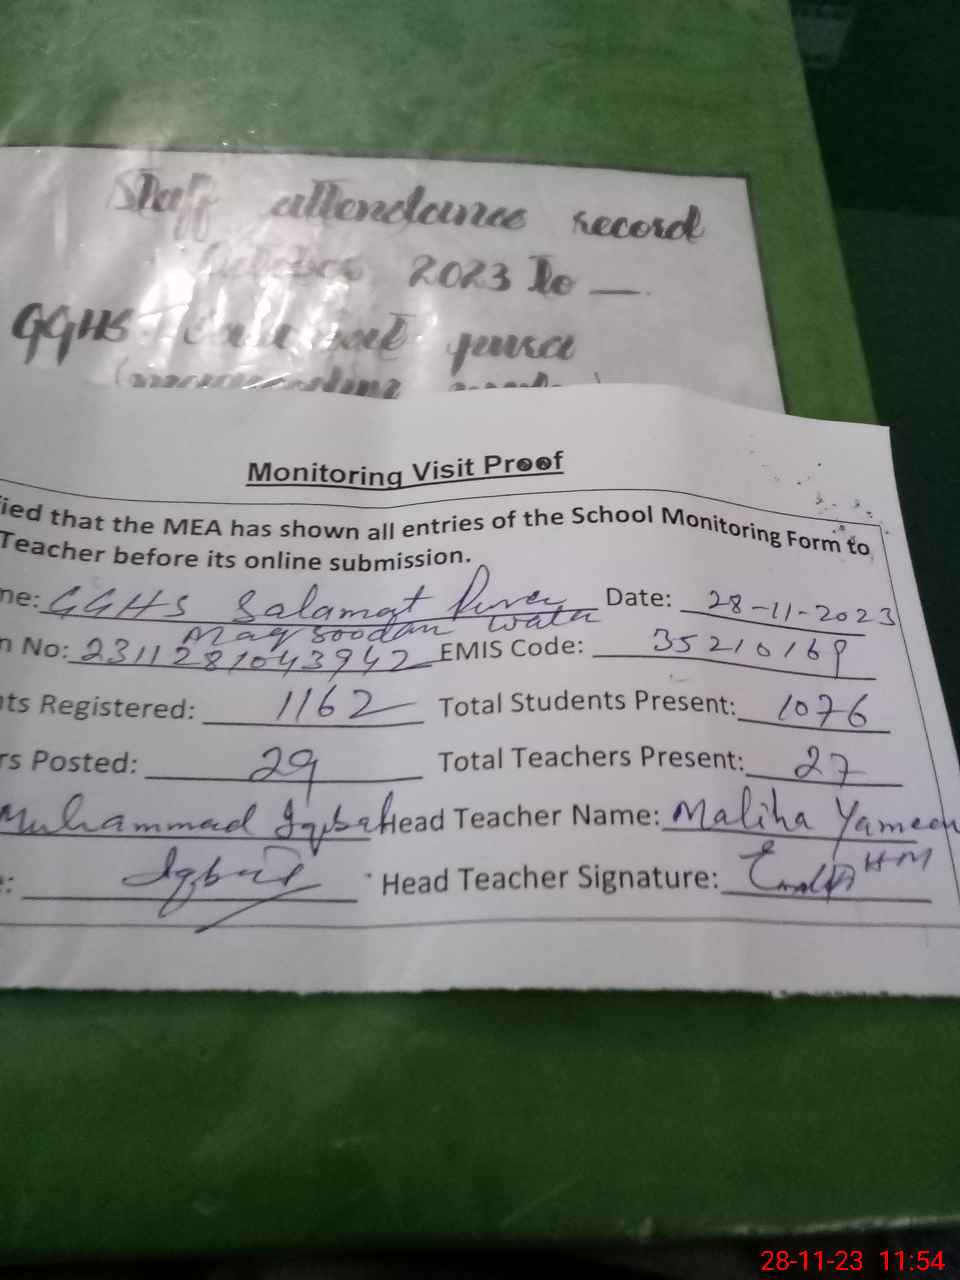 Staff attendance record
2023 To —
GGHS pura
Monitoring Visit Proof
ied that the MEA has shown all entries of the School Monitoring Form to
Teacher before its online submission.
me: GGHS Salamat Pura Date: 28-11-2023
Maqsoodan wala
n No: 2311281043942 EMIS Code: 35210169
nts Registered: 1162 Total Students Present: 1076
rs Posted: 29 Total Teachers Present: 27
Muhammad Iqbal Head Teacher Name: Maliha Yameen
e: Iqbal Head Teacher Signature: HM
28-11-23 11:54